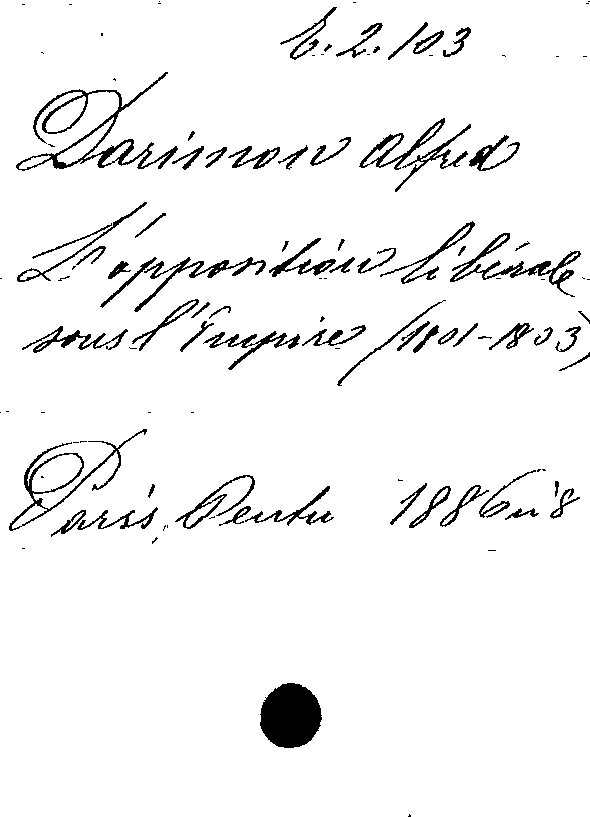 E.2.103
Darimon Alfred
L'opposition libérale
sous l'Empire (1801-1803)
Paris, Dentu 1886 in 8